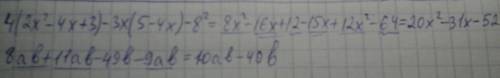 4(2x²-4x+3)-3x(5-4x)-8²=8x²-16x+12-15x+12x²-64=20x²-31x-52
8ab+11ab-49b-9ab=10ab-40b